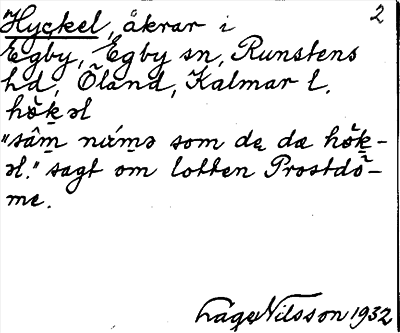 Hyckel, åkrar i 2
Egby, Egby sn, Runstens
hd, Öland, Kalmar l.
hø̀k̬əl
"sâm nά́mə som dę dæ hø̀k̬-
əl." sagt om lotten Prostdö-
me.
Låge Nilsson 1932